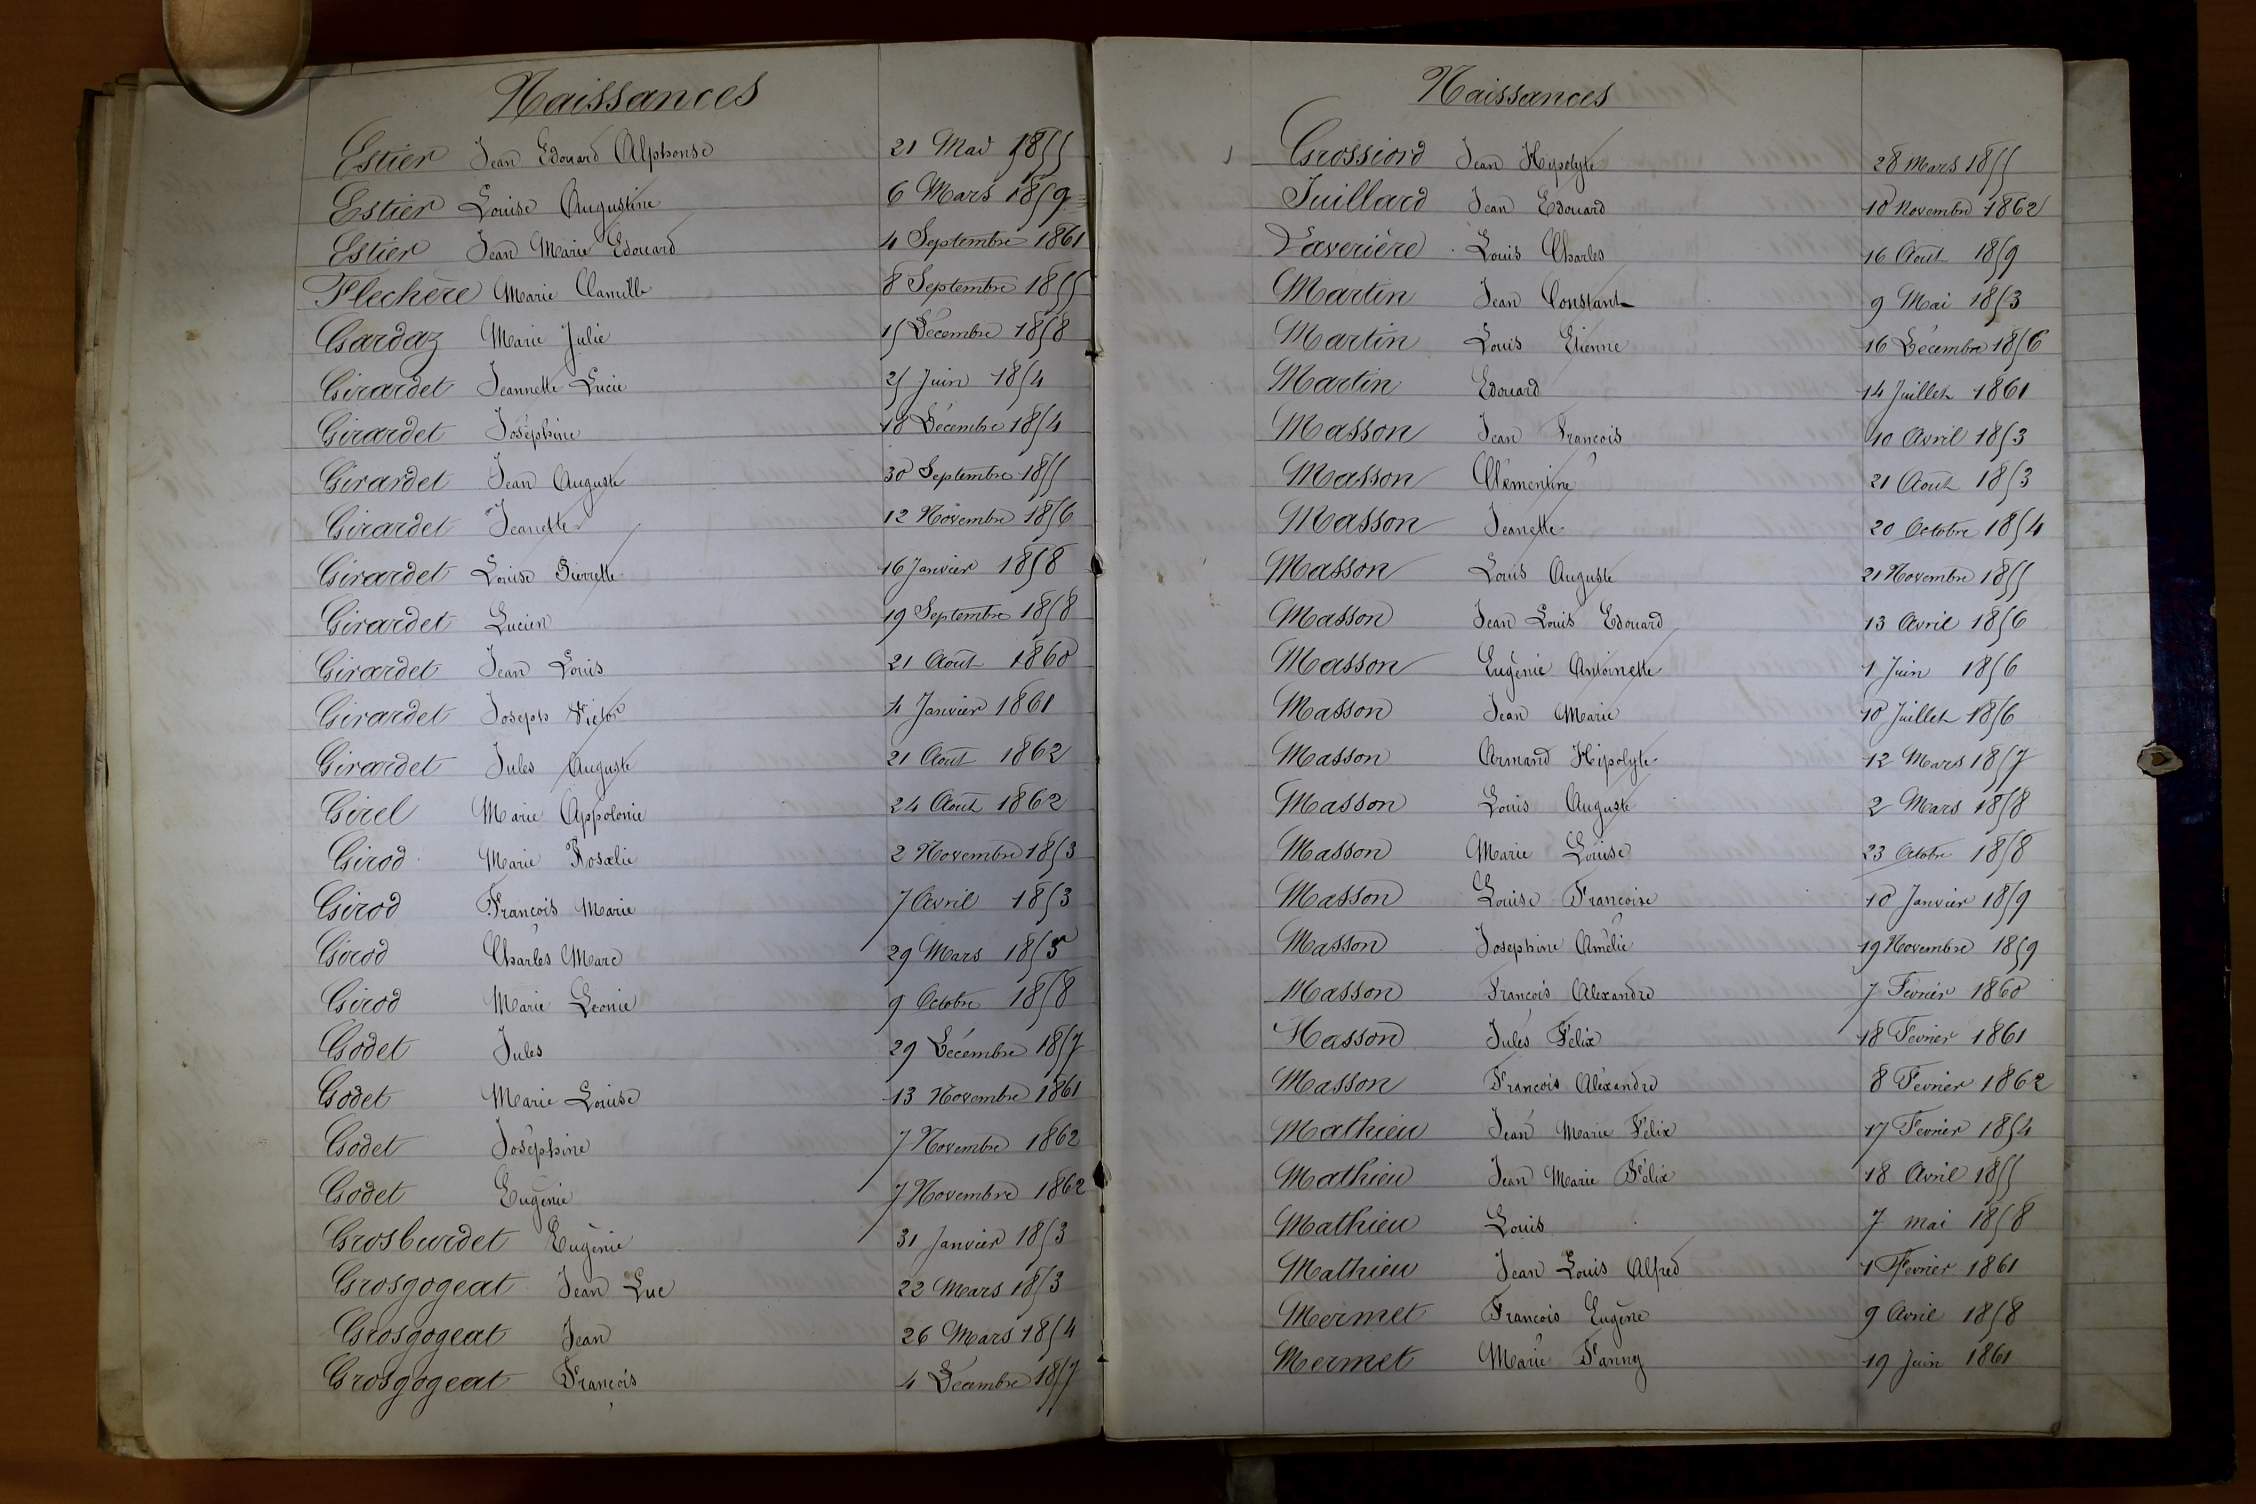 Naissances
Estier Jean Edouard Alphonse 21 Mai 1855
Estier Louise Augustine 6 Mars 1859
Estier Jean Marie Edouard 4 Septembre 1861
Flechère Marie Camille 8 Septembre 1855
Gardaz Marie Julie 15 Décembre 1858
Girardet Jeannette Lucie 25 Juin 1854
Girardet Joséphine 18 Décembre 1854
Girardet Jean Auguste 30 Septembre 1855
Girardet Jeanette 12 Novembre 1856
Girardet Louise Pierrette 16 Janvier 1858
Girardet Lucien 19 Septembre 1858
Girardet Jean Louis 21 Août 1860
Girardet Joseph Victor 4 Janvier 1861
Girardet Jules Auguste 21 Août 1862
Girel Marie Appolonie 24 Août 1862
Girod Marie Rosalie 2 Novembre 1853
Girod François Marie 7 Avril 1853
Girod Charles Marc 29 Mars 1855
Girod Marie Leonie 9 Octobre 1858
Godet Jules 29 Décembre 1857
Godet Marie Louise 13 Novembre 1861
Godet Joséphine 7 Novembre 1862
Godet Eugénie 7 Novembre 1862
Grosburdet Eugénie 31 Janvier 1853
Grosgogeat Jean Luc 22 Mars 1853
Grosgogeat Jean 26 Mars 1854
Grosgogeat François 4 Décembre 1857
Naissances
Grossiord Jean Hypolyte 28 Mars 1855
Juillard Jean Edouard 18 Novembre 1862
Laverière Louis Charles 16 Août 1859
Martin Jean Constant 9 Mai 1853
Martin Louis Etienne 16 Décembre 1856
Martin Edouard 14 Juillet 1861
Masson Jean François 10 Avril 1853
Masson Clémentine 21 Août 1853
Masson Jeanette 20 Octobre 1854
Masson Louis Auguste 21 Novembre 1855
Masson Jean Louis Edouard 13 Avril 1856
Masson Eugénie Antoinette 1 Juin 1856
Masson Jean Marie 10 Juillet 1856
Masson Armand Hipolyte 12 Mars 1857
Masson Louis Auguste 2 Mars 1858
Masson Marie Louise 23 Octobre 1858
Masson Louise Françoise 10 Janvier 1859
Masson Josephine Amélie 19 Novembre 1859
Masson François Alexandre 7 Fevrier 1860
Masson Jules Felix 18 Fevrier 1861
Masson François Aléxandre 8 Fevrier 1862
Mathieu Jean Marie Félix 17 Fevrier 1854
Mathieu Jean Marie Félix 18 Avril 1855
Mathieu Louis 7 mai 1858
Mathieu Jean Louis Alfred 1 Fevrier 1861
Mermet François Eugène 9 Avril 1858
Mermet Marie Fanny 19 Juin 1861